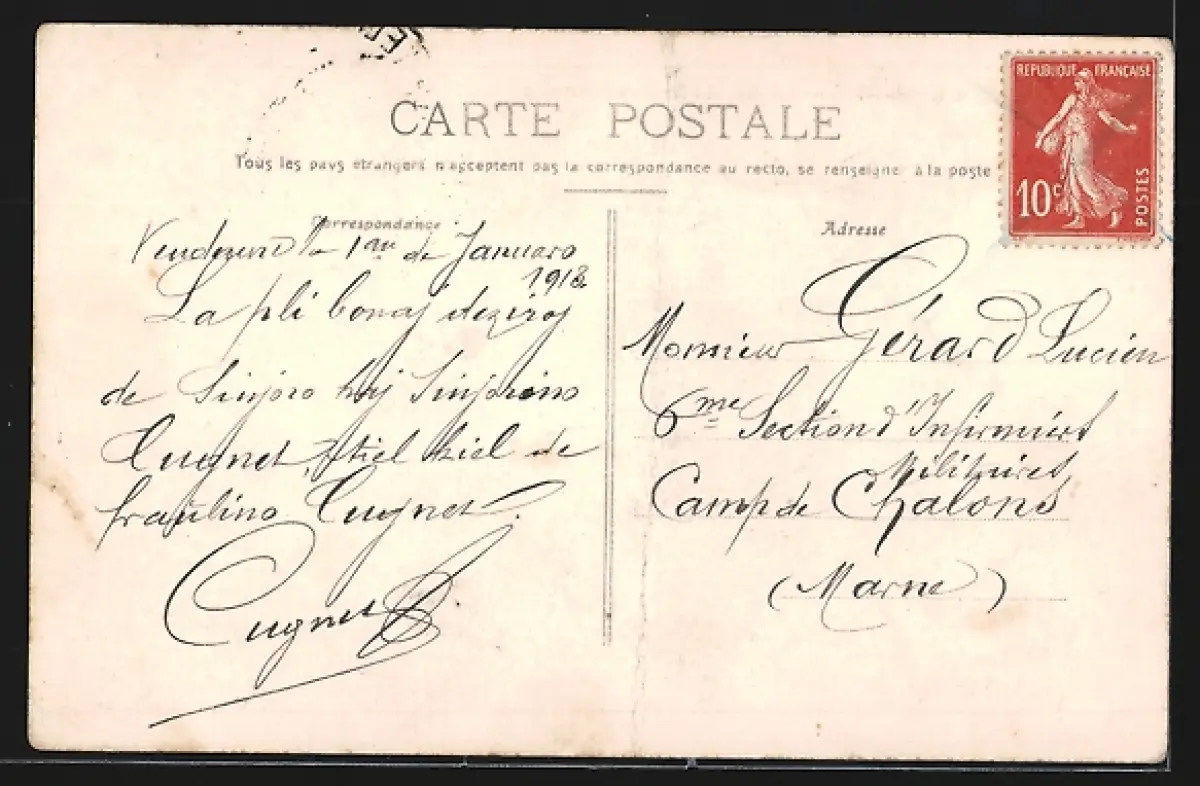 CARTE POSTALE
Tous les pays étrangers n'acceptent pas la correspondance au recto, se renseigner à la poste
REPUBLIQUE FRANÇAISE
10c
POSTES
Correspondance
1an de Januaro
1913
La pli bonaj deziroj
de Sinjoro kaj Sinjorino
Cugnet, tiel kiel de
fraŭlino Cugnet.
Cugnet
Adresse
Monsieur Gérard Lucien
6me Section d'Infirmiers
Militaires
Camp de Chalons
(Marne)